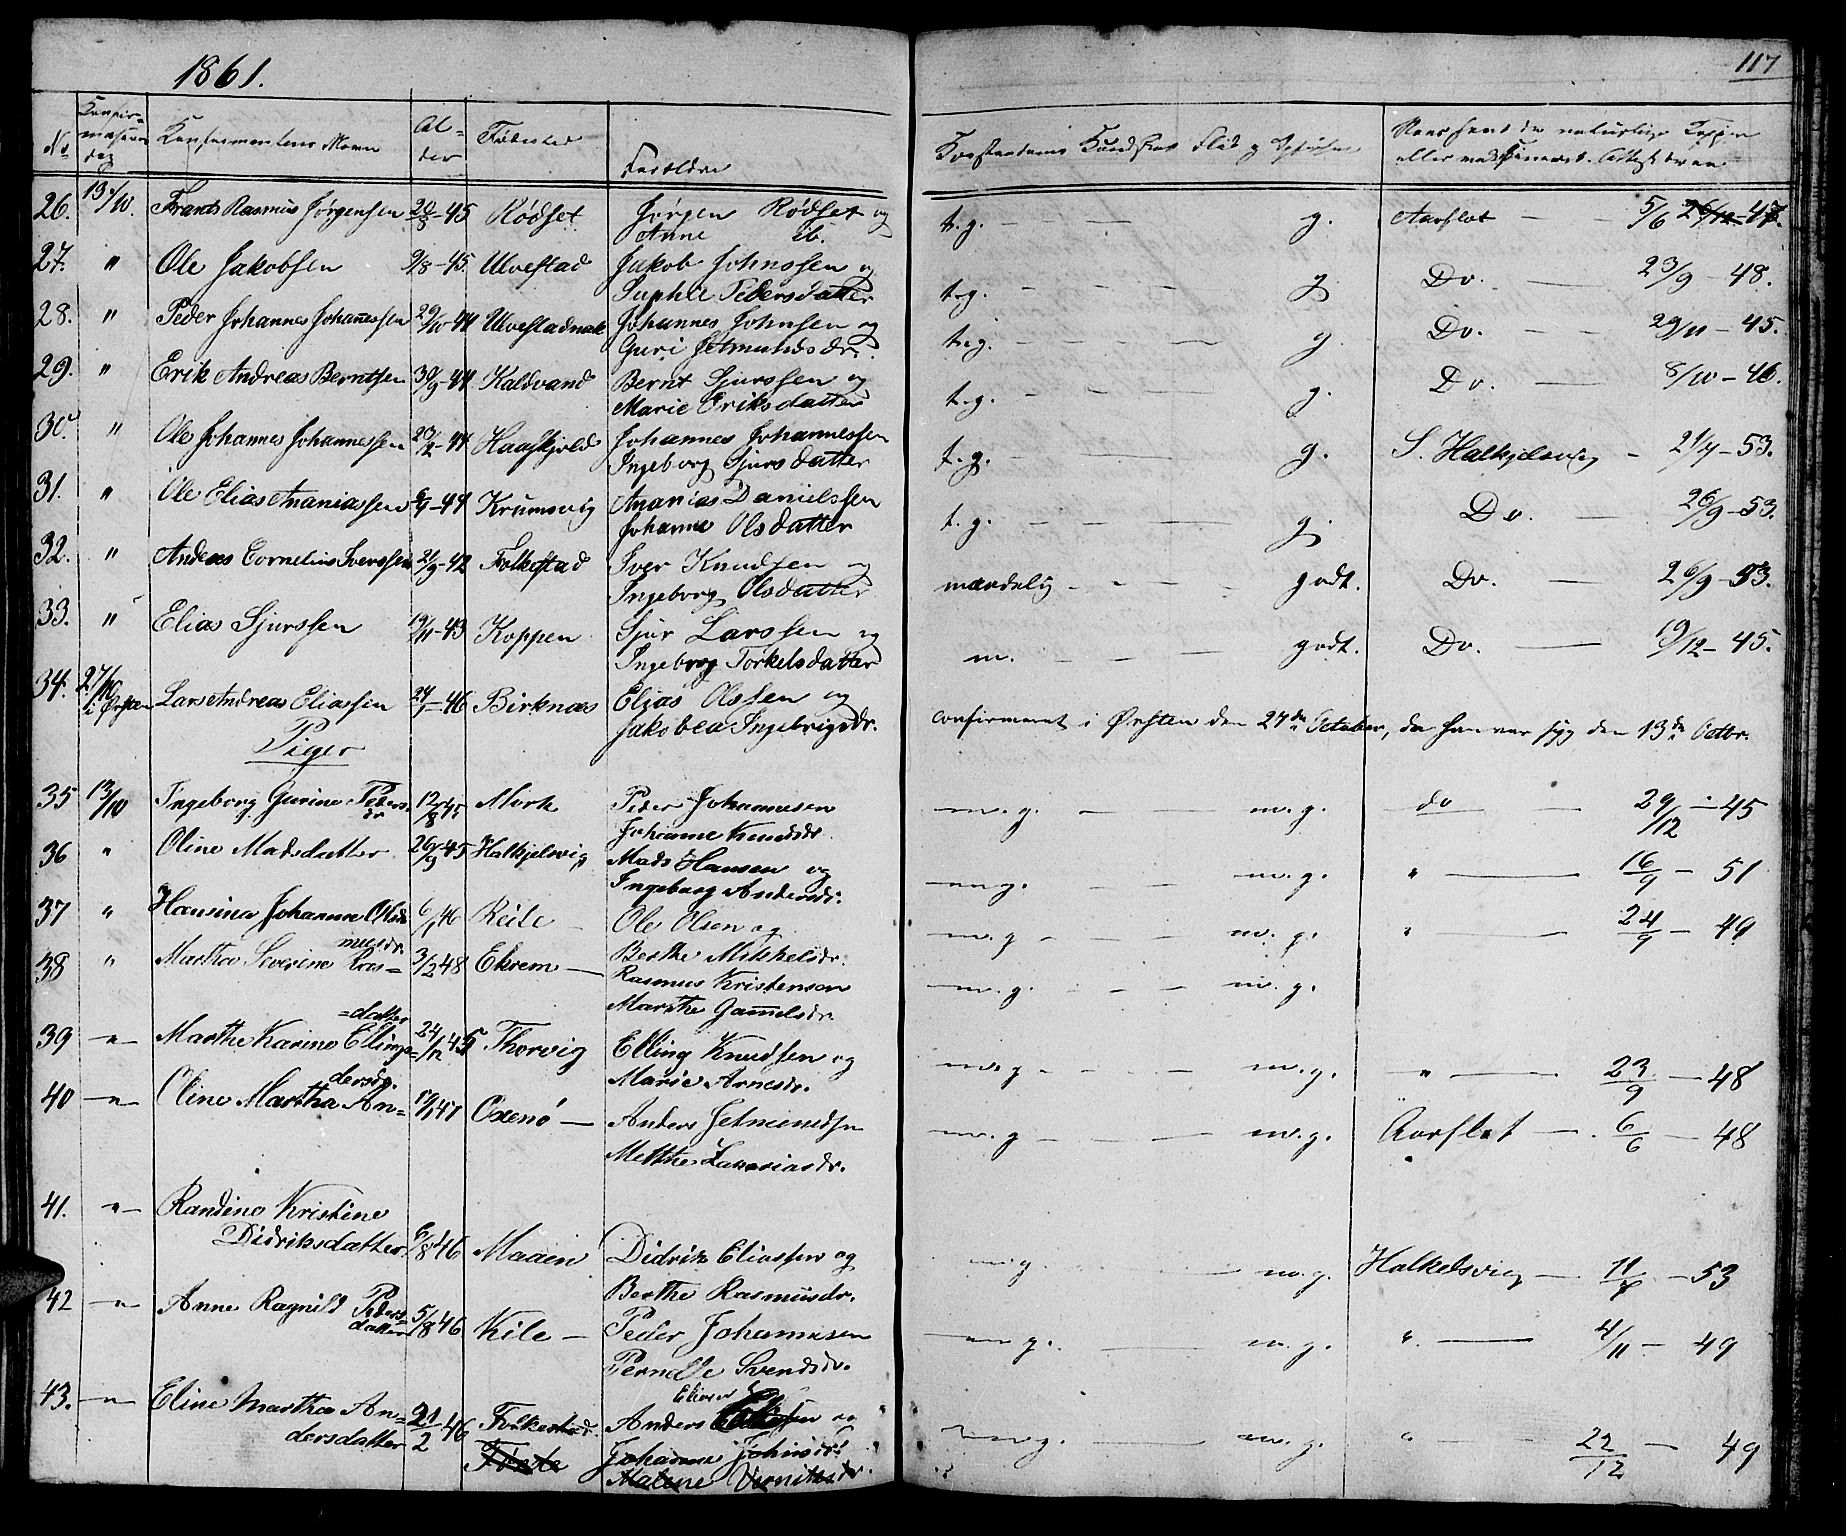 1861.
117
No
Confirmations dag
Confirmantens Navn
Alder
Fødested
Forældre
Forstandens Kundskab Flid og Opførsel
26. 13/10. Frants Rasmus Jørgensen 20/8-45 Rødset Jørgen Rødset og
Anne ib.
t.g. — — — g. Aarflot — — 5/6 26/12-47.
27. " Ole Jakobsen 9/8-45. Ulvestad Jakob Johnssen og
Pedersdatter
t.g. — — — g. Do. — — 23/9-48.
28. " Peder Johannes Johannessen 29/10-44 Ulvestad Johannes Johnsen og
Guri Jetmundsdr.
t.g. — — — g. Do. — — 29/11-45.
29. " Erik Andreas Berntsen 30/9-44 Kaldvand Bernt Sjurssen og
Marie Eriksdatter
t.g. — — — g. Do. — 8/10-46.
30. " Ole Johannes Johannessen 23/2-44 Haaskjold Johannes Johannessen
Ingeborg Sjursdatter
t.g. — — — g. S. Halkjelsvig — 21/7-53.
31. " Ole Elias Ananiassen 6/9-44 Krumsvig Ananias Danielssen
Johanne Olsdatter
t.g. — — — g. Do. — 26/9-53.
32. " Andreas Cornelius Iverssen 21/9-42 Folkestad Iver Knudsen og
Ingeborg Olsdatter
maadelig — — — godt. Do. — 26/9-53.
33. " Elias Sjurssen 19/11-43 Koppen Sjur Larssen og
Ingeborg Torkelsdatter
m. — — — godt. Do. — 19/12-45.
34. 27/10 i Ørsten Lars Andreas Eliassen 24/1-46 Birknæs Elias Olssen og
Jakobea Ingebrigtsdr.
confirmeret i Ørsten den 27de October, da han var syg den 13de Octbr.
Piger
35 13/10 Ingeborg Gurine Pedersdr 12/8 45 Mork Peder Johannesen
Johanne Knudsdr.
m.g. — — — m.g. do — 29/12-45
36 " Oline Madsdatter 26/9 45 Halkjelsvig Mads Hansen og
Ingeborg Andersdr.
m.g. — — — m.g. " — 16/9 - 51
37 " Hansine Johanne Olsdr 6/1 46 Reite — Ole Olsen og
Berthe Mikkelsdr.
m.g — — — m.g. " — 24/9 - 49
38 " Martha Severine Rasmusdr. 3/2 48 Ekrem — Rasmus Kristensen
Marthe Gammelsdr.
m.g. — — — m.g.
39 -"- Marthe Karine Ellings=datter 24/12 45 Thorvig Elling Knudsen og
Marie Arnesdr.
m.g — — — m.g. " — 23/9 - 48
40 -"- Oline Martha Andersdr. 19/1 47 Oxenö — Anders Jetmundsen
Metthe Zakariasdr.
m.g — — — m.g. Aarflot — 6/6 - 48
41. -"- Randine Kristine
Didriksdatter 6/8 46 Maaen Didrik Eliassen og
Berthe Rasmusdr.
m.g. — — m.g. Halkelsvig — 11/8 - 53
42 -"- Anne Ragnild Peders=datter 5/8 46 Kile — Peder Johannesen
Pernelle Svendsdr.
m.g. — — m.g. " — 4/11 - 49
43. -"- Eline Martha An=
dersdatter 21/2 46 Folkestad. Anders og
Johanne Johnsdr.
m.g. — — m.g. " — 22/12 - 49